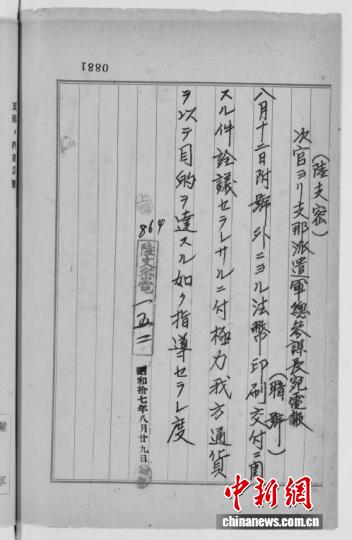 0881
(陸支密)
次官ヨリ支那派遣軍總參謀長宛電報
(暗號)
八月十二日附號外ニヨル法幣印刷交付ニ関
スル件詮議セラレサルニ付極力我方通貨
ヲ以テ目的ヲ達スル如ク指導セラレ度
864
陸支密電
一五二
昭和拾七年八月廿九日
軍
中新網
chinanews.com.cn